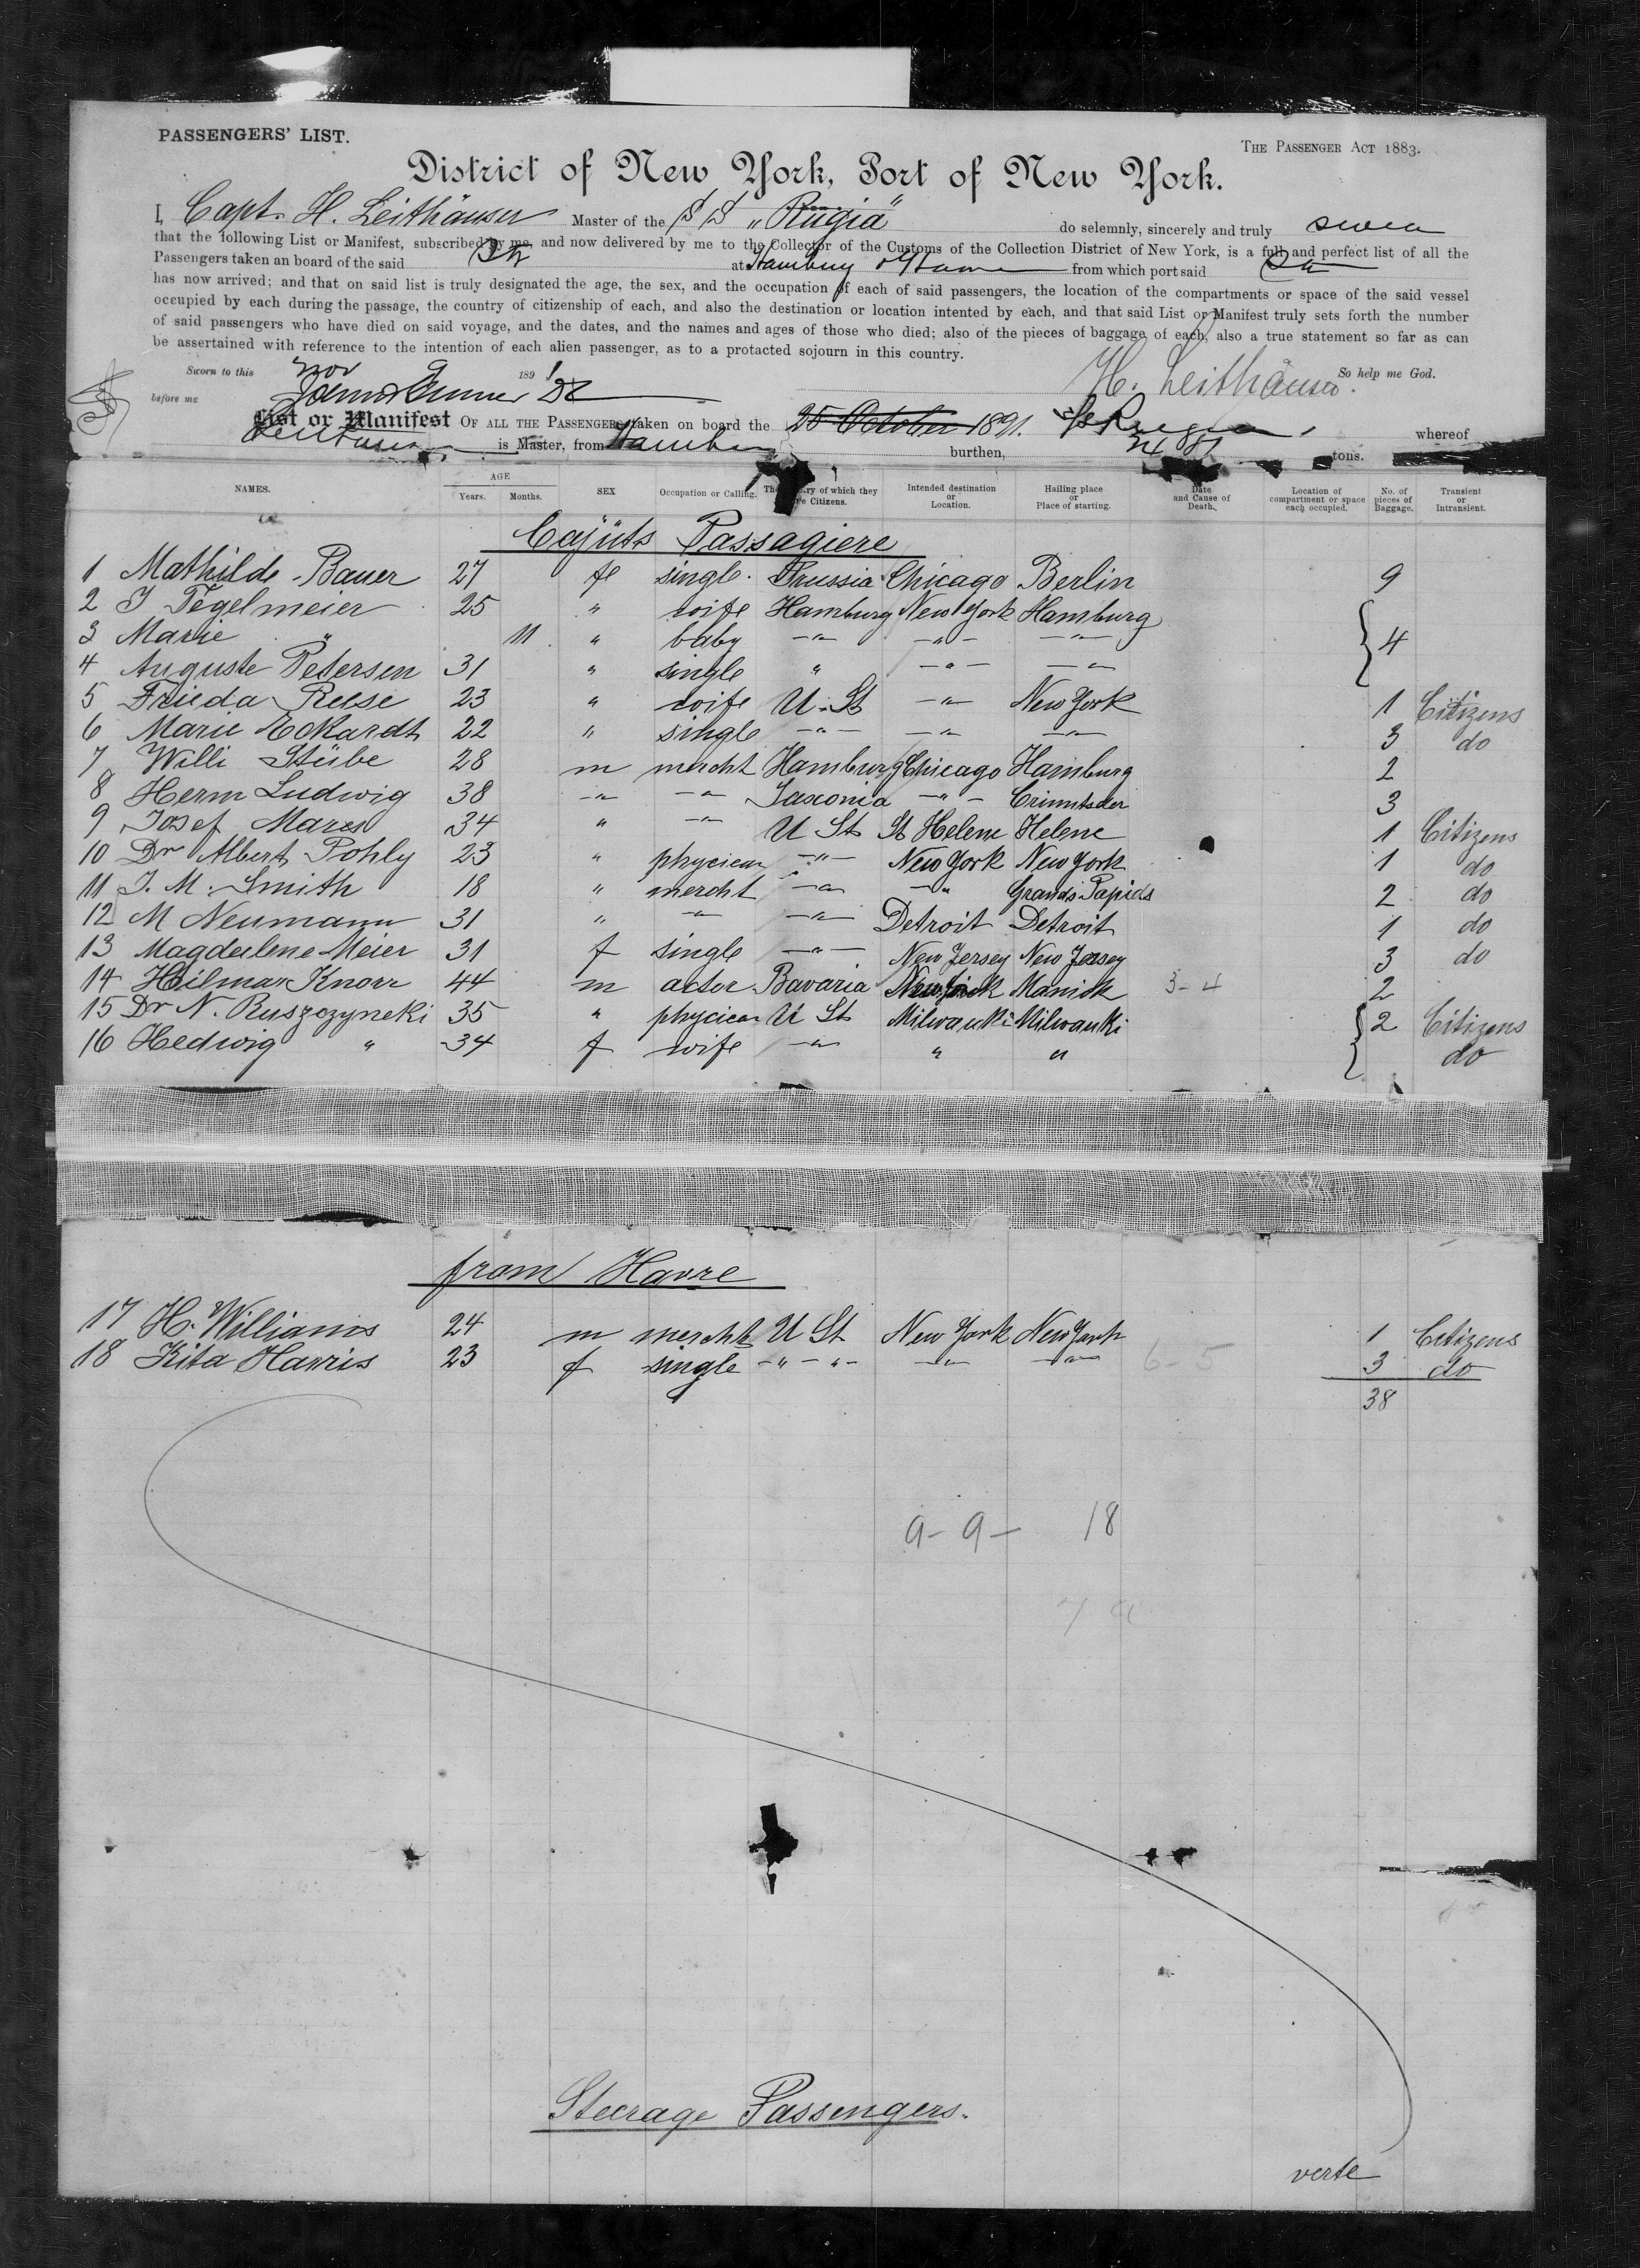 PASSENGERS' LIST.
THE PASSENGER ACT 1883.
District of New York, Port of New York.
I, Capt. H. Leithäuser Master of the S S „Rugia" do selemnly, sincerely and truly swear
that the following List or Manifest, subscribed by me, and now delivered by me to the Collector of the Customs of the Collection District of New York, is a full and perfect list of all the
Passengers taken an board of the said at Hamburg & Havre from which port said
has now arrived; and that on said list is truly designated the age, the sex, and the occupation of each of said passengers, the location of the compartments or space of the said vessel
occupied by each during the passage, the country of citizenship of each, and also the destination or location intented by each, and that said List or Manifest truly sets forth the number
of said passengers who have died on said voyage, and the dates, and the names and ages of those who died; also of the pieces of baggage of each, also a true statement so far as can
be assertained with reference to the intention of each alien passenger, as to a protacted sojourn in this country.
Sworn to this Nov 9 1891 So help me God.
before me H. Leithäuser.
List or Manifest OF ALL THE PASSENGERS taken on board the 25 October 1891. SS Rugia, whereof
is Master, from Hamburg burthen, tons.
NAMES. AGE Years. Months. SEX Occupation or Calling. The of which they are Citizens. Intended destination or Location. Hailing place or Place of starting. Date and Cause of Death. Location of compartment or space each occupied. No. of pieces of Baggage. Transient or Intransient.
Cajüts Passagiere
1 Mathilde Bauer 27 fe single. Prussia Chicago Berlin 9
2 J Tegelmeier 25 " wife Hamburg New York Hamburg
3 Marie " 11 " baby —"— —"— —"— 4
4 Auguste Petersen 31 " single " —"— —"—
5 Frieda Reese 23 " wife U. St —"— New York 1 Citizens
6 Marie Eckardt 22 " single —"— —"— —"— 3 do
7 Willi Stübe 28 m mercht Hamburg Chicago Hamburg 2
8 Herm Ludwig 38 —"— —"— Saxonia —"— 3
9 Josef Mares 34 " —"— U St St Helene Helene 1 Citizens
10 Dr Albert Pohly 23 " phycican —"— New York New York 1 do
11 J. M. Smith 18 " mercht —"— —"— Grands Papids 2 do
12 M Neumann 31 " —"— —"— Detroit Detroit 1 do
13 Magdeelene Meier 31 f single —"— New Jersey New Jersey 3 do
14 Hilmar Knorr 44 m actor Bavaria New York Manich 3-4 2
15 Dr N. Ruszczyneki 35 " phycican U St Milwauki Milwauki 2 Citizens
16 Hedwig " 34 f wife —"— " " do
from Havre
17 H. Williams 24 m mercht U St New York New York 1 Citizens
18 Rita Harris 23 f single —"—"— —"— —"— 6-5 3 do
38
9-9- 18
Steerage Passengers.
verte